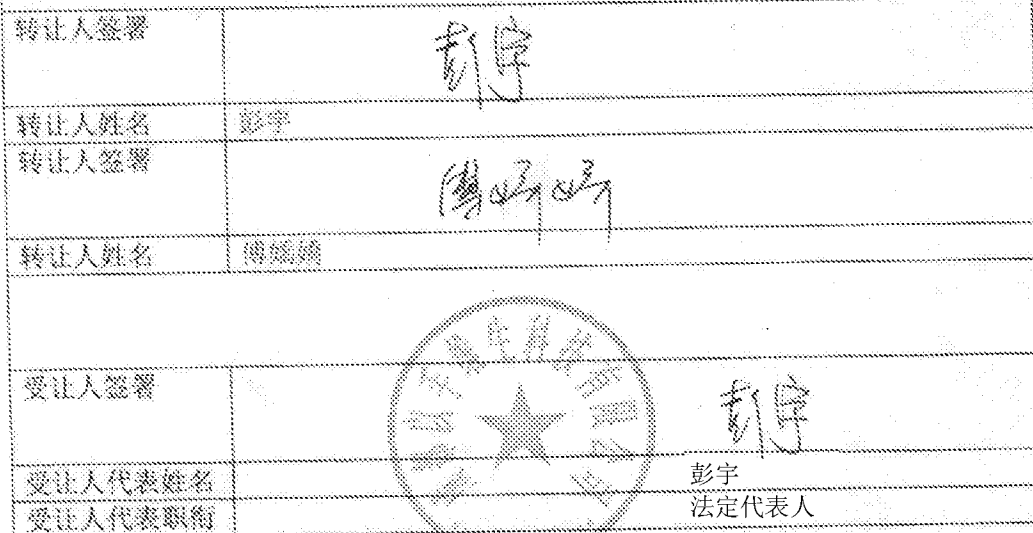 转让人签署
彭宇
转让人姓名 彭宇
转让人签署
转让人姓名 傅嫣嫡
受让人签署
彭宇
受让人代表姓名 彭宇
受让人代表职衔 法定代表人